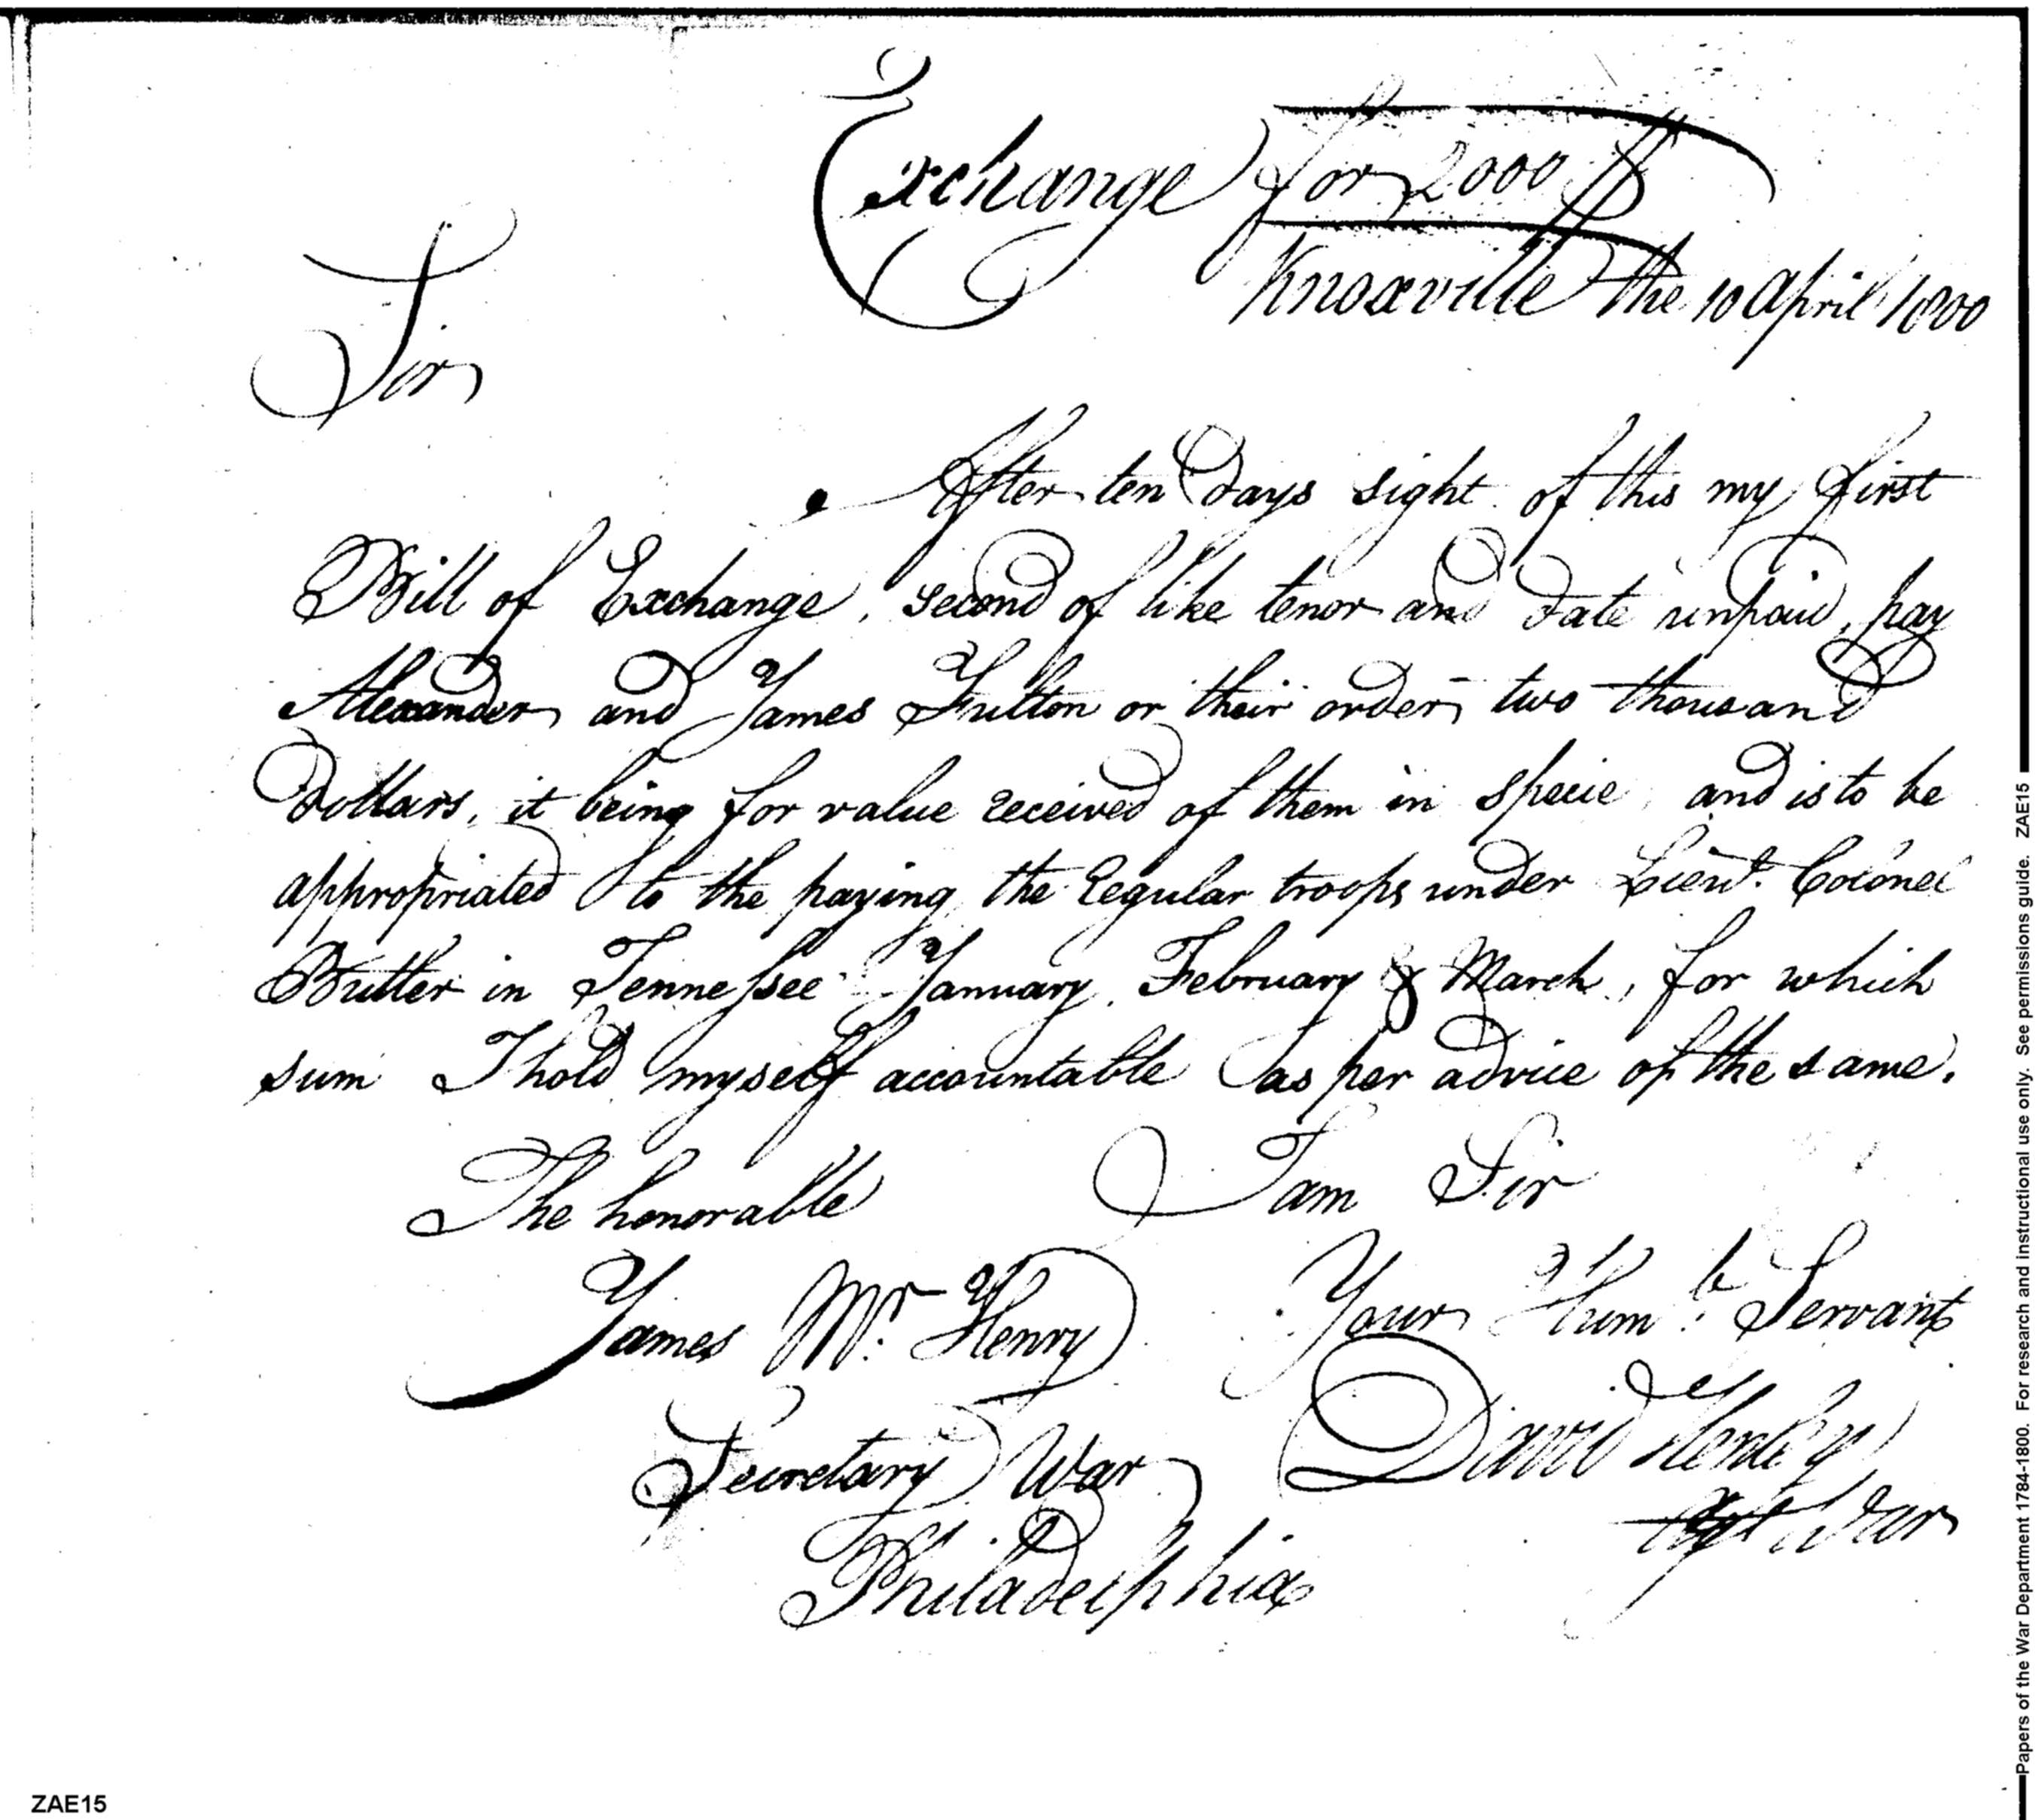 Exchange for 2000 $
Knoxville the 10 April 1800
Sir
After ten Days sight of this my first
Bill of Exchange, second of like tenor and date unpaid, pay
Alexander and James Fulton or their order two thousand
Dollars, it being for value received of them in specie, and is to be
appropriated to the paying the Regular troops under Lieut. Colonel
Butler in Tennessee January, February & March, for which
sum I hold myself accountable as per advice of the same.
The honorable I am Sir
James Mc. Henry Your Humb. Servant
Secretary War David Henley
Agt War
Philadelphia
ZAE15
Papers of the War Department 1784-1800. For research and instructional use only. See permissions guide. ZAE15